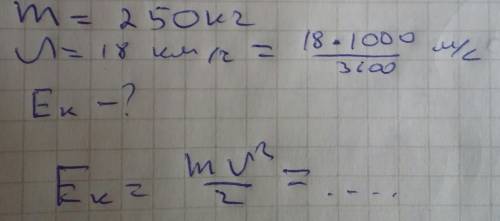 m = 250кг
v = 18 км/г = 18 • 1000 / 3600 м/с
Eк - ?
Eк = mv² / 2 = ....